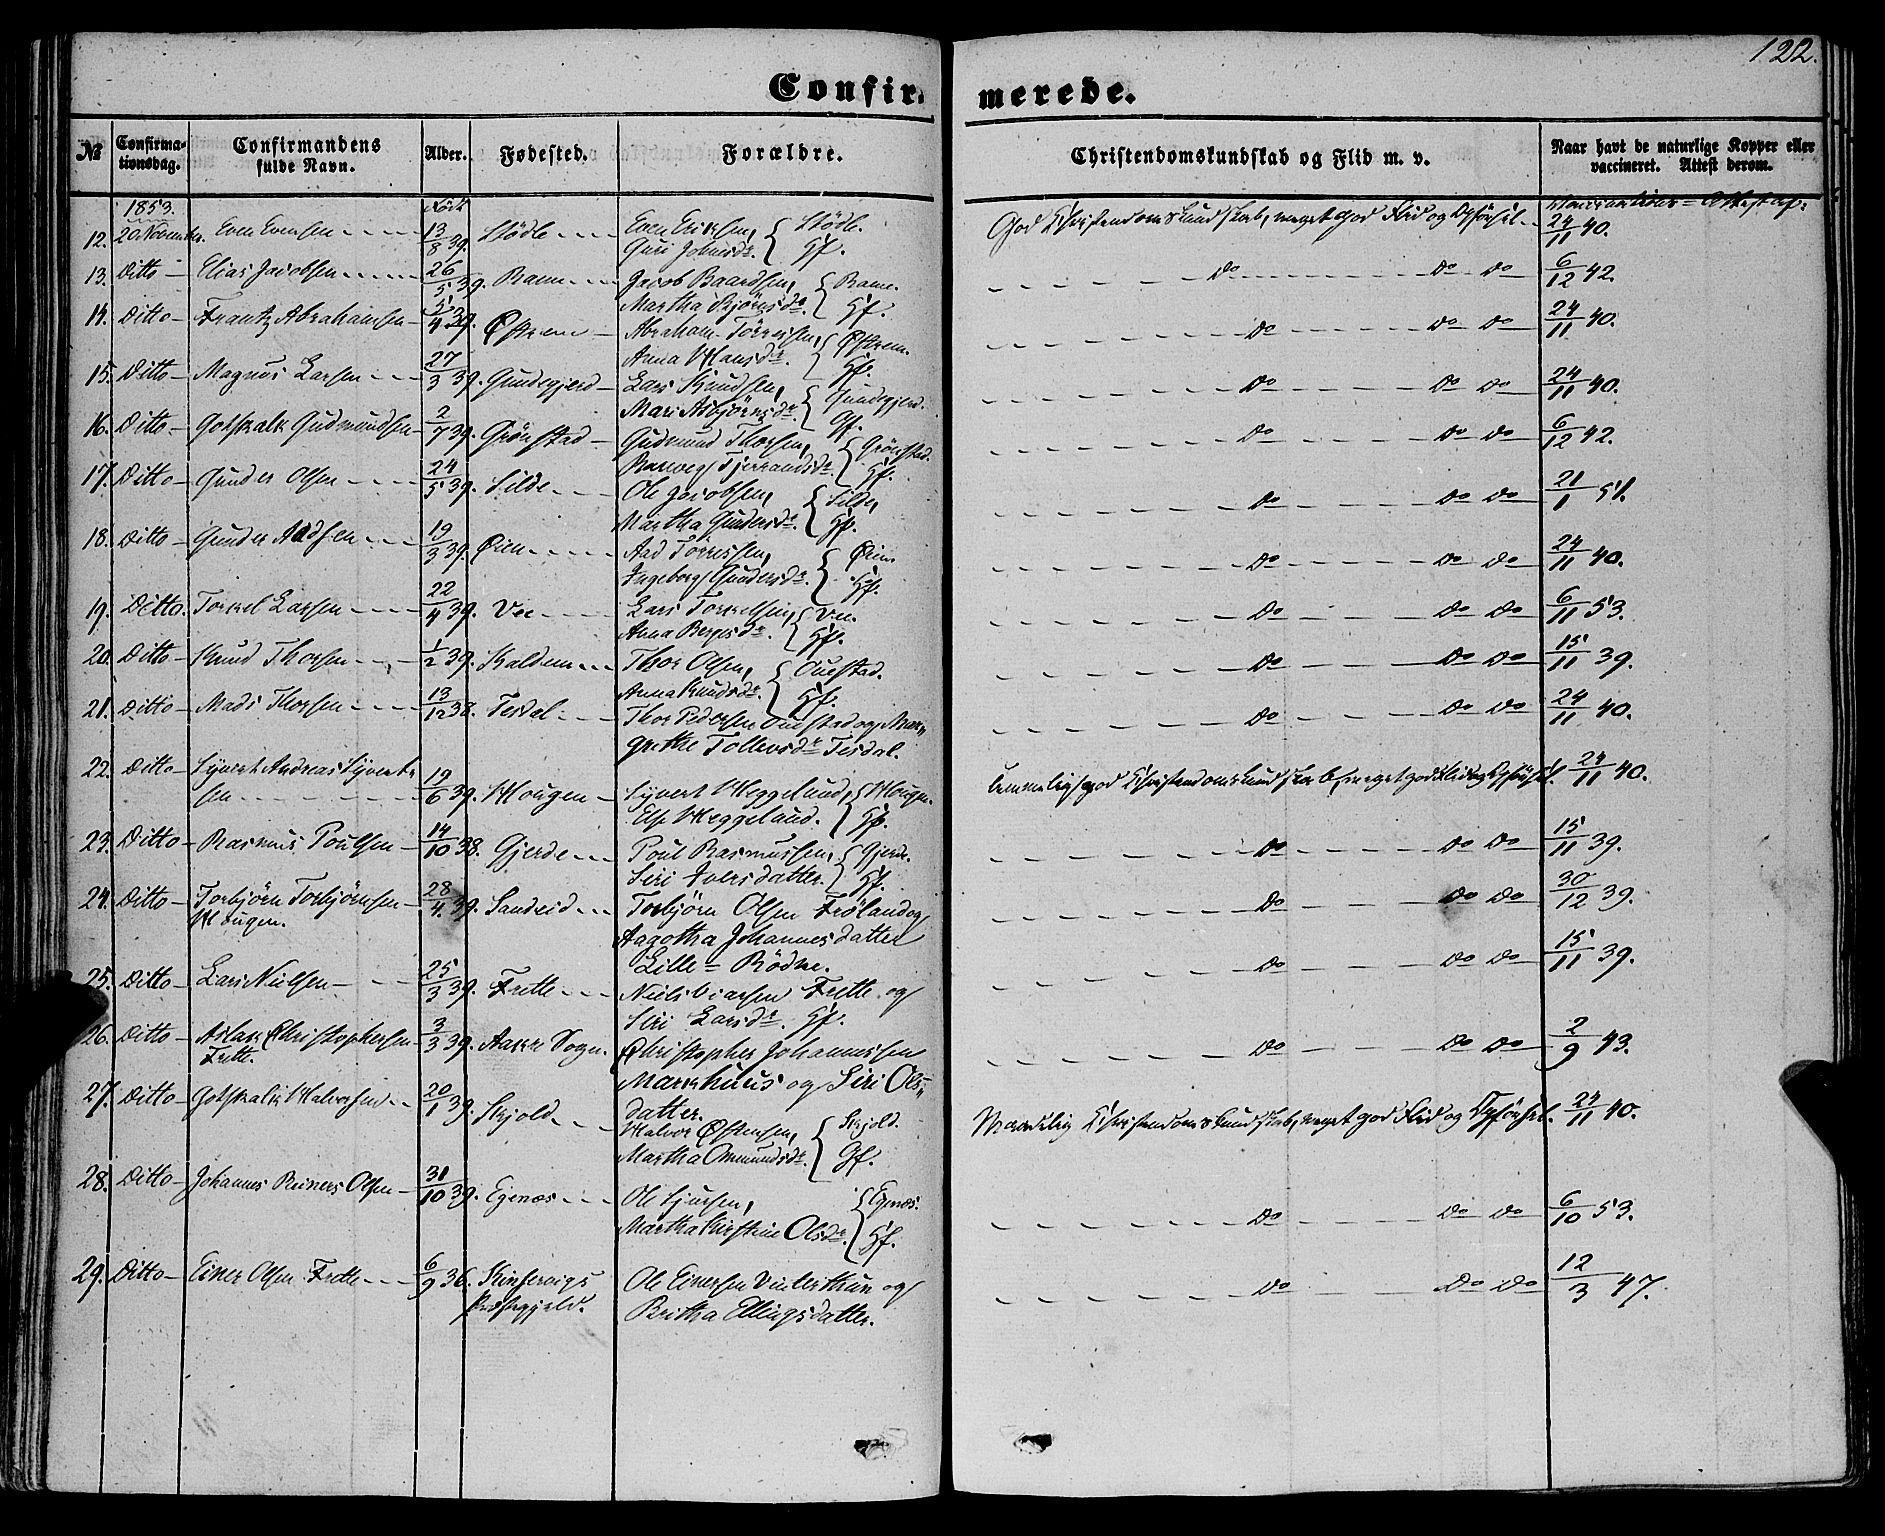 122.
Confir- merede.
№ Confirma- tionsdag. Confirmandens fulde Navn. Alder. Fødested. Forældre. Christendomskundskab og Flid m. v. Naar havt de naturlige Kopper eller vaccineret. Attest derom.
1853. Født Vaccinations=Attestaf:
12. 20 November Even Evensen 13/8 39. Stødle Even Eriksen, Guri Johnsdr. { Stødle. Gf. God Christendomskundskab, meget god Flid og Opførsel. 24/11 40.
13. Ditto Elias Jacobsen 26/5 39. Ramm Jacob Baardsen, Martha Bjørnsdr. { Ramm. Gf. Do Do Do 6/12 42.
14. Ditto Frantz Abrahamsen 5/4 39. Østrem Abraham Tørresen, Anna Hansdr. { Østrem. Gf. Do Do Do 24/11 40.
15. Ditto Magnus Larsen 27/3 39. Gundegjerd Lars Knudsen, Mari Asbjørnsdr. { Gundegjerd. Gf. Do Do Do 24/11 40.
16. Ditto Gotskalk Gudmundsen 2/7 39. Grønstad Gudmund Thorsen, Tjerrandsdr. { Grønstad. Gf. Do Do Do 6/12 42.
17. Ditto Gunder Olsen 24/5 39. Silde Ole Jacobsen, Martha Gundersdr. { Silde, Gf. Do Do Do 21/1 51.
18. Ditto Gunder Aadsen 19/3 39. Øien Aad Tørresen, Ingeborg Gundersdr. { Øien. Gf. Do Do Do 24/11 40.
19. Ditto. Torkel Larsen 22/4 39. Vee Lars Torkelsen, Anna Bergesdr. { Vee. Gf. Do Do Do 6/11 53.
20. Ditto Knud Thorsen 1/2 39. Kaldem Thor Olsen, Anna Knudsdr. { Ouestad. Gf. Do Do Do 15/11 39.
21. Ditto Mads Thorsen 13/12 38. Tesdal Thor Pedersen Ouestad og Mar-
grethe Tollevsdr. Tesdal. Do Do Do 24/11 40.
22. Ditto Syvert Andreas Syvert-
sen 19/6 39. Hougen Syvert Heggelund, Else Heggeland. { Hougen. Gf. temmelig god Christendomskundskab, meget god Flid og Opførsel. 24/11 40.
23. Ditto Rasmus Poulsen 14/10 38. Gjerde Poul Rasmussen, Siri Iversdatter. { Gjerde. Gf. Do Do Do 15/11 39.
24. Ditto Torbjørn Torbjørnsen
Hougen. 28/4. 39. Sandeid Torbjørn Olsen Frøland og
Aagotha Johannesdatter
Lille=Rødne. Do Do Do 30/12 39.
25. Ditto Lars Nielsen 25/3 39. Frette Niels Frette og
Siri Larsdr. Gf. Do Do Do 15/11 39.
26. Ditto Aslak Christophersen
Frette. 3/3 39. Aakre Sogn. Christopher Johannessen
Markhuus og Siri Ols-
datter. Do Do Do 2/9 43.
27. Ditto Gotskalk Halvorsen 20/1 39. Skjold Halvor Østensen, Martha Ommundsdr. { Skjold. Gf. Maadelig Christendomskundskab, meget god Flid og Opførsel. 24/11 40.
28. Ditto Johannes Reiners Olsen 31/10 39. Egenæs Ole Sjursen, Martha Kirstine Olsdr. { Egenæs. Gf. Do Do Do 6/10 53.
29. Ditto Einer Olsen Frette 6/9 36. Kinservigs
Præstegjeld. Ole Einersen Vinterthun og
Britha Ellingsdatter. Do Do Do 12/3 47.